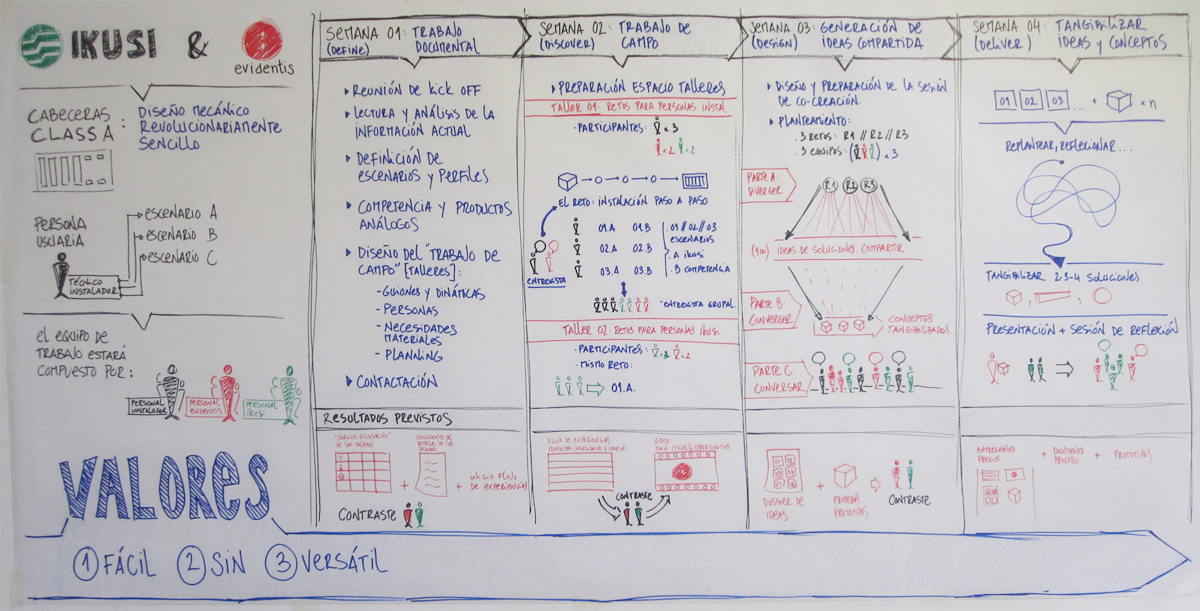 IKUSI & evidentis
CABECERAS
CLASS A:
DISEÑO MECÁNICO
REVOLUCIONARIAMENTE
SENCILLO
PERSONA
USUARIA
ESCENARIO A
ESCENARIO B
ESCENARIO C
TÉCNICO
INSTALADOR
EL EQUIPO DE
TRABAJO ESTARÁ
COMPUESTO POR:
PERSONAL
INSTALADOR
PERSONAL
EVIDENTIS
PERSONAL
IKUSI
VALORES
1 FÁCIL 2 SIN 3 VERSÁTIL
SEMANA 01: TRABAJO
(DEFINE) DOCUMENTAL
REUNIÓN DE KICK OFF
LECTURA Y ANÁLISIS DE LA
INFORMACIÓN ACTUAL
DEFINICIÓN DE
ESCENARIOS Y PERFILES
COMPETENCIA Y PRODUCTOS
ANÁLOGOS
DISEÑO DEL "TRABAJO DE
CAMPO" [TALLERES]:
- GUIONES Y DINÁTICAS
- PERSONAS
- NECESIDADES
MATERIALES
- PLANNING
CONTACTACIÓN
RESULTADOS PREVISTOS
+ INICIO FLUJO
DE EXPERIENCIAS
CONTRASTE
SEMANA 02: TRABAJO DE
(DISCOVER) CAMPO
PREPARACIÓN ESPACIO TALLERES
TALLER 01: RETOS PARA PERSONAS INSTAL.
· PARTICIPANTES: x 3
x 2 x 2
EL RETO: INSTALACIÓN PASO A PASO
01.A 01.B
02.A 02.B
03.A 03.B
· 01 // 02 // 03
ESCENARIOS
· A IKUSI
· B COMPETENCIA
ENTREVISTA
- ENTREVISTA GRUPAL
TALLER 02 RETOS PARA PERSONAS IKUSI
· PARTICIPANTES: x 2 x 2
· MISMO RETO:
01.A.
FLUJO DE EXPERIENCIAS
VIDEO
CONTRASTE
SEMANA 03: GENERACIÓN DE
(DESIGN) IDEAS COMPARTIDA
DISEÑO Y PREPARACIÓN DE LA SESIÓN
DE CO-CREACIÓN.
PLANTEAMIENTO:
· 3 RETOS: R1 // R2 // R3
· 3 EQUIPOS: ( ) x 3
PARTE A:
DIVERGER
R1 R2 R3
(100) IDEAS DE SOLUCIONES. COMPARTIR
PARTE B:
CONVERGER
CONCEPTOS
TANGIBILIZADOS
PARTE C
CONVERSAR
DOSSIER DE
IDEAS
+
PRIMEROS
PROTOTIPOS
CONTRASTE
SEMANA 04: TANGIBILIZAR
(DELIVER) IDEAS Y CONCEPTOS
01 02 03 ... + x n
REPLANTEAR, REFLEXIONAR...
TANGIBILIZAR 2-3-4 SOLUCIONES
PRESENTACIÓN + SESIÓN DE REFLEXIÓN
ENTREGABLES
PREVIOS
+ DOCUMENTOS
PROCESO
+ PROTOTIPOS